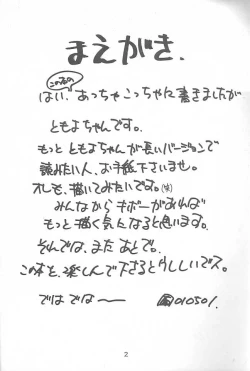 まえがき.
この本の
はい、あっちゃこっちゃに書きましたが
ともよちゃんです。
もっと ともよちゃんが長いバージョンで
読みたい人、お手紙下さいませ。
オレも、描いてみたいです。(笑)
みんなからキボーがあれば
もっと描く気になると思います。
そんでは、また あとで。
この本を、楽しんで下さるとうれしいでス。
では では〜
010501.
2